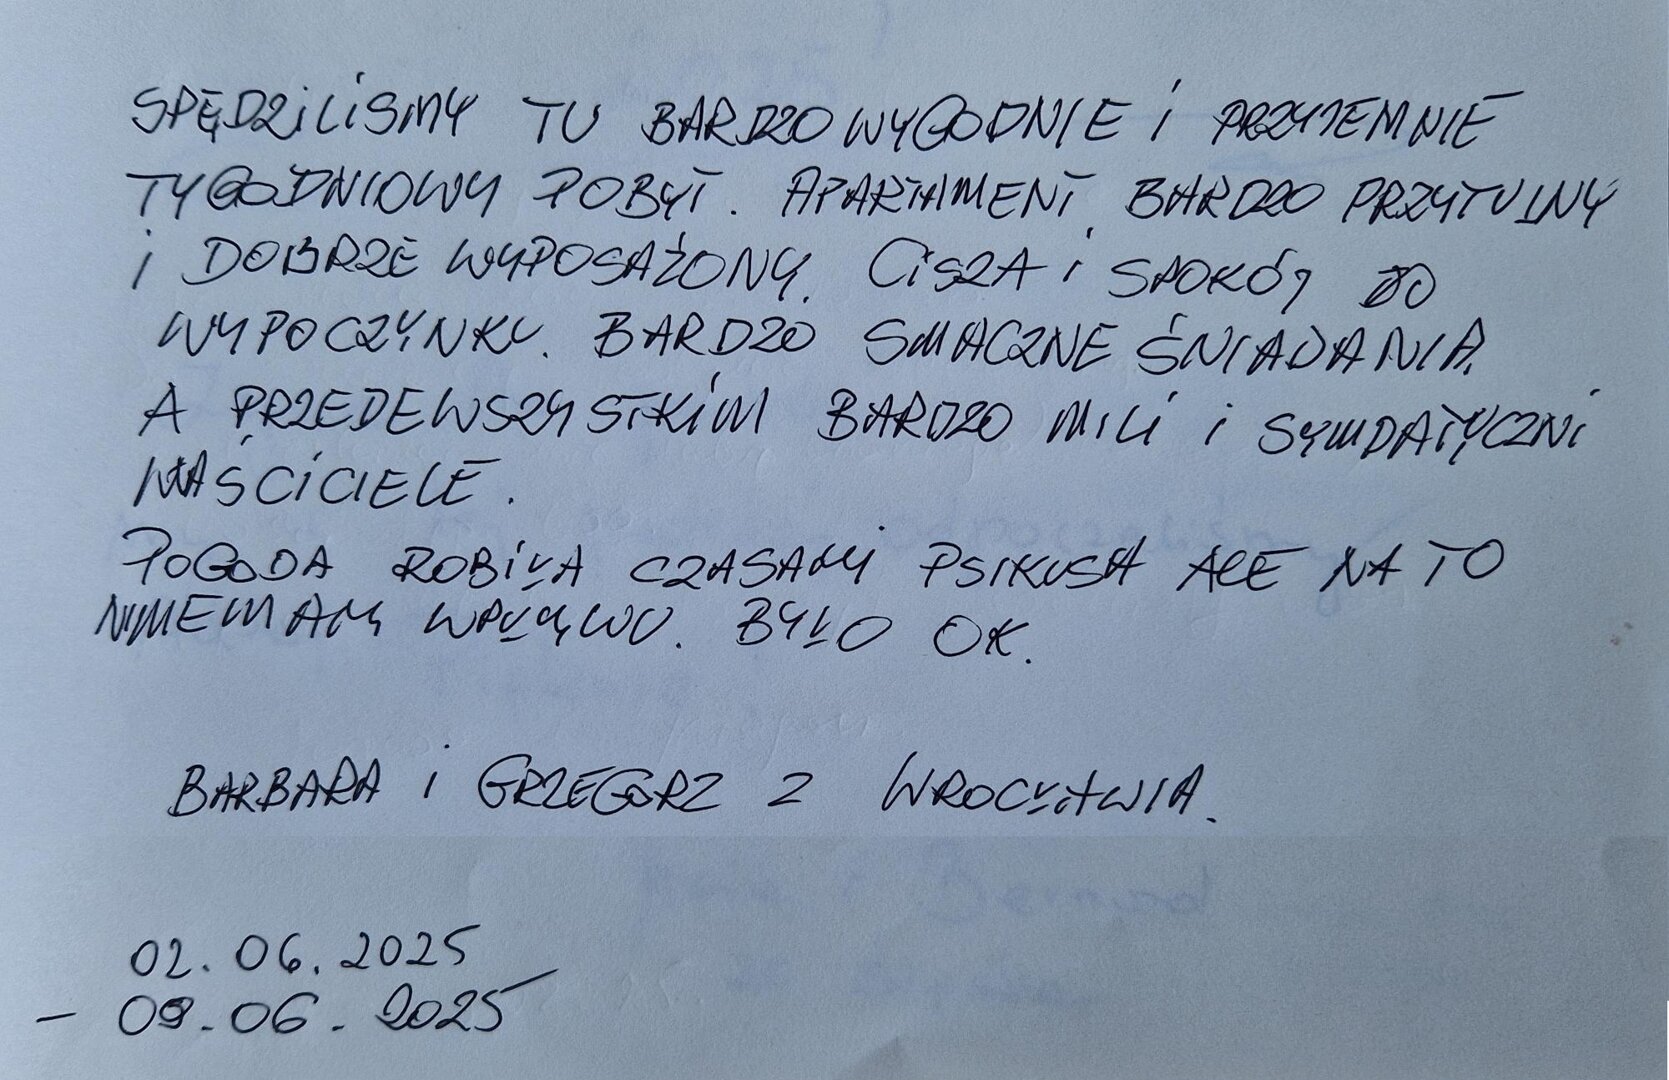 SPĘDZILISMY TU BARDZO WYGODNIE I PRZYJEMNIE
TYGODNIOWY POBYT. APARTAMENT BARDZO PRZYTULNY
I DOBRZE WYPOSAŻONY. CISZA I SPOKÓJ DO
WYPOCZYNKU. BARDZO SMACZNE ŚNIADANIA.
A PRZEDEWSZYSTKIM BARDZO MILI I SYMPATYCZNI
WŁAŚCICIELE.
POGODA ROBIŁA CZASAMI PSIKUSA ALE NA TO
NIE MAMY WPŁYWU. BYŁO OK.
BARBARA I GRZEGORZ Z WROCŁAWIA.
02.06.2025
- 09.06.2025